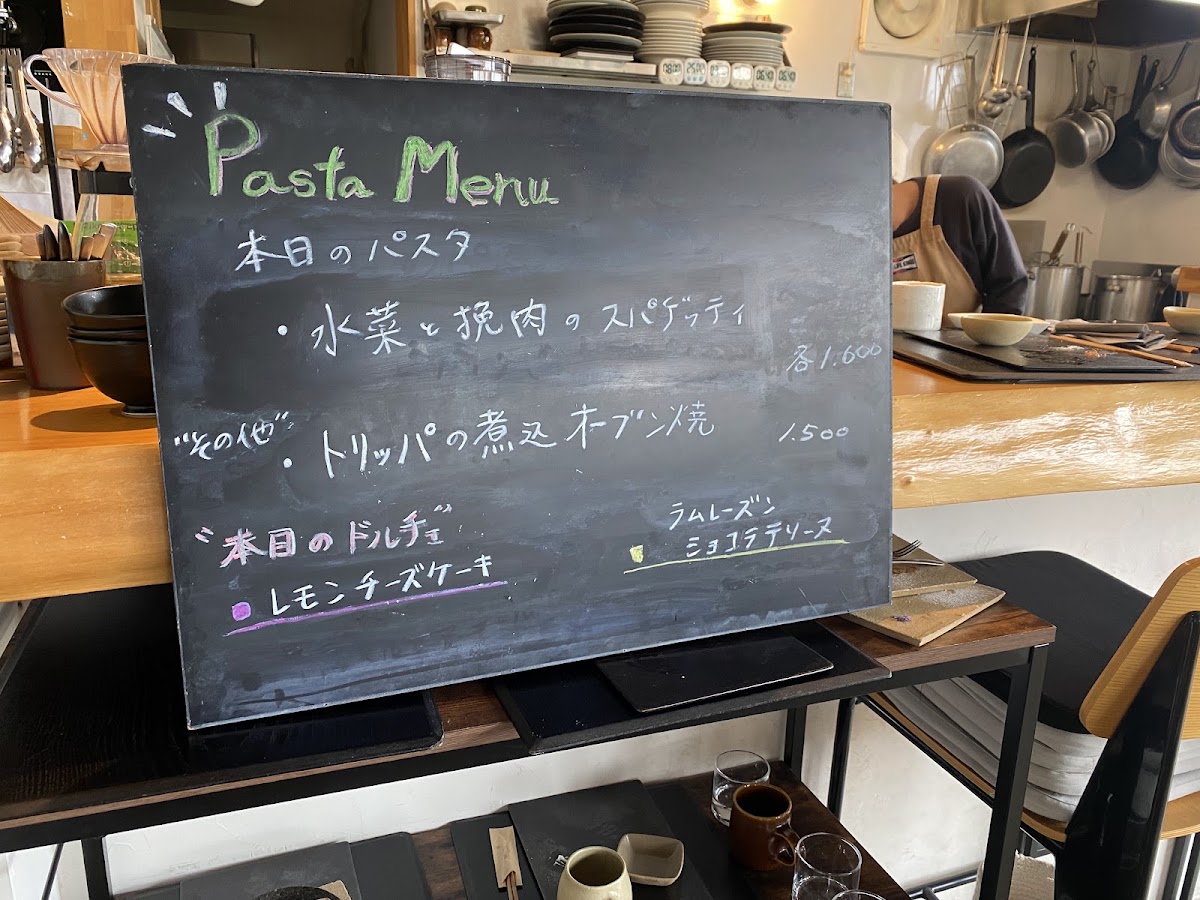 Pasta Menu
本日のパスタ
・水菜と挽肉のスパゲッティ
各1.600
"その他"
・トリッパの煮込オーブン焼 1.500
"本日のドルチェ"
レモンチーズケーキ
ラムレーズン
ショコラテリーヌ